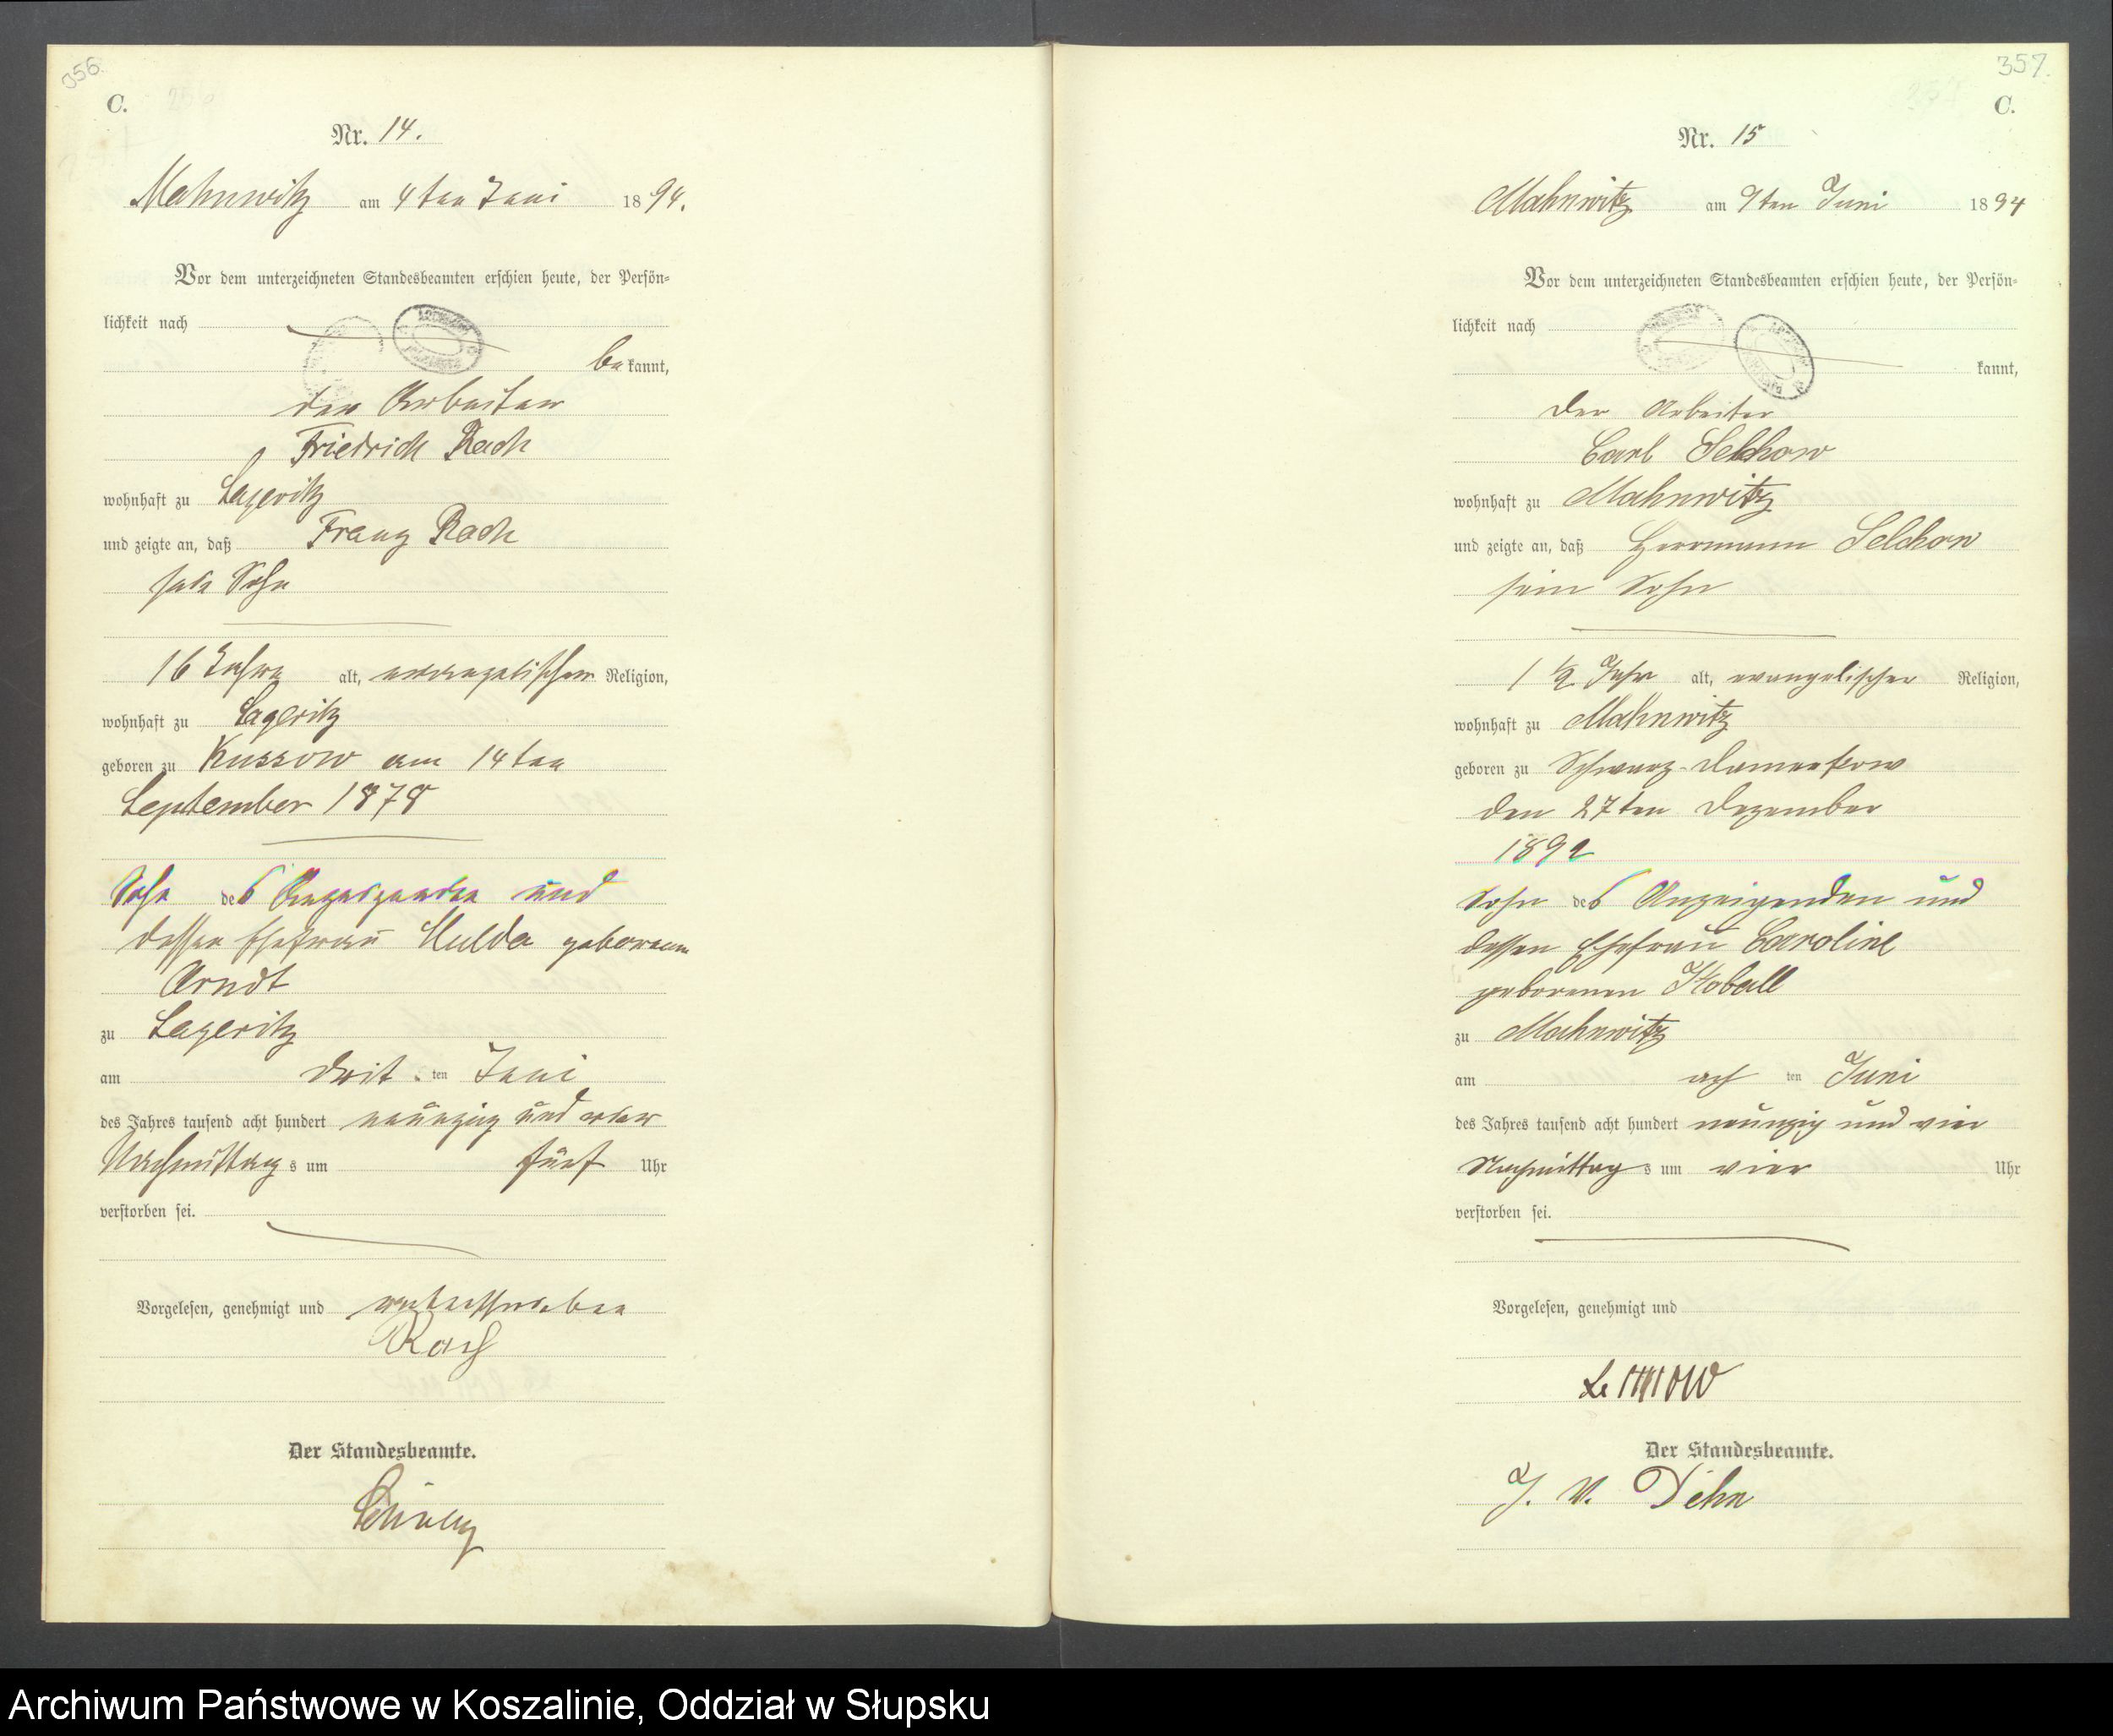 356.
C.
Nr. 14.
Mahnwitz am 4ten Juni 1894.
Vor dem unterzeichneten Standesbeamten erschien heute, der Persön-
lichkeit nach
bekannt,
der Arbeiter
Friedrich Rach
wohnhaft zu Lageritz
und zeigte an, daß Franz Rach
sein Sohn
16 Jahre alt, evangelischer Religion,
wohnhaft zu Lageritz
geboren zu Kussow am 14ten
September 1878
Sohn des Anzeigenden und
dessen Ehefrau Hulda geborenen
Arndt
zu Lageritz
am drit ten Juni
des Jahres tausend acht hundert neunzig und vier
Nachmittags um fünf Uhr
verstorben sei.
Vorgelesen, genehmigt und unterschrieben
Rach
Der Standesbeamte.
357.
C.
Nr. 15
Mahnwitz am 9ten Juni 1894
Vor dem unterzeichneten Standesbeamten erschien heute, der Persön-
lichkeit nach
kannt,
der Arbeiter
Carl Selchow
wohnhaft zu Mahnwitz
und zeigte an, daß Herrmann Selchow
sein Sohn
1 ½ Jahr alt, evangelischer Religion,
wohnhaft zu Mahnwitz
geboren zu Schwarz-Damerkow
den 27ten Dezember
1892
Sohn des Anzeigenden und
dessen Ehefrau Caroline
geborenen Koball
zu Mahnwitz
am ach ten Juni
des Jahres tausend acht hundert neunzig und vier
Nachmittags um vier Uhr
verstorben sei.
Vorgelesen, genehmigt und
Der Standesbeamte.
J. V. Dehn
Archiwum Państwowe w Koszalinie, Oddział w Słupsku